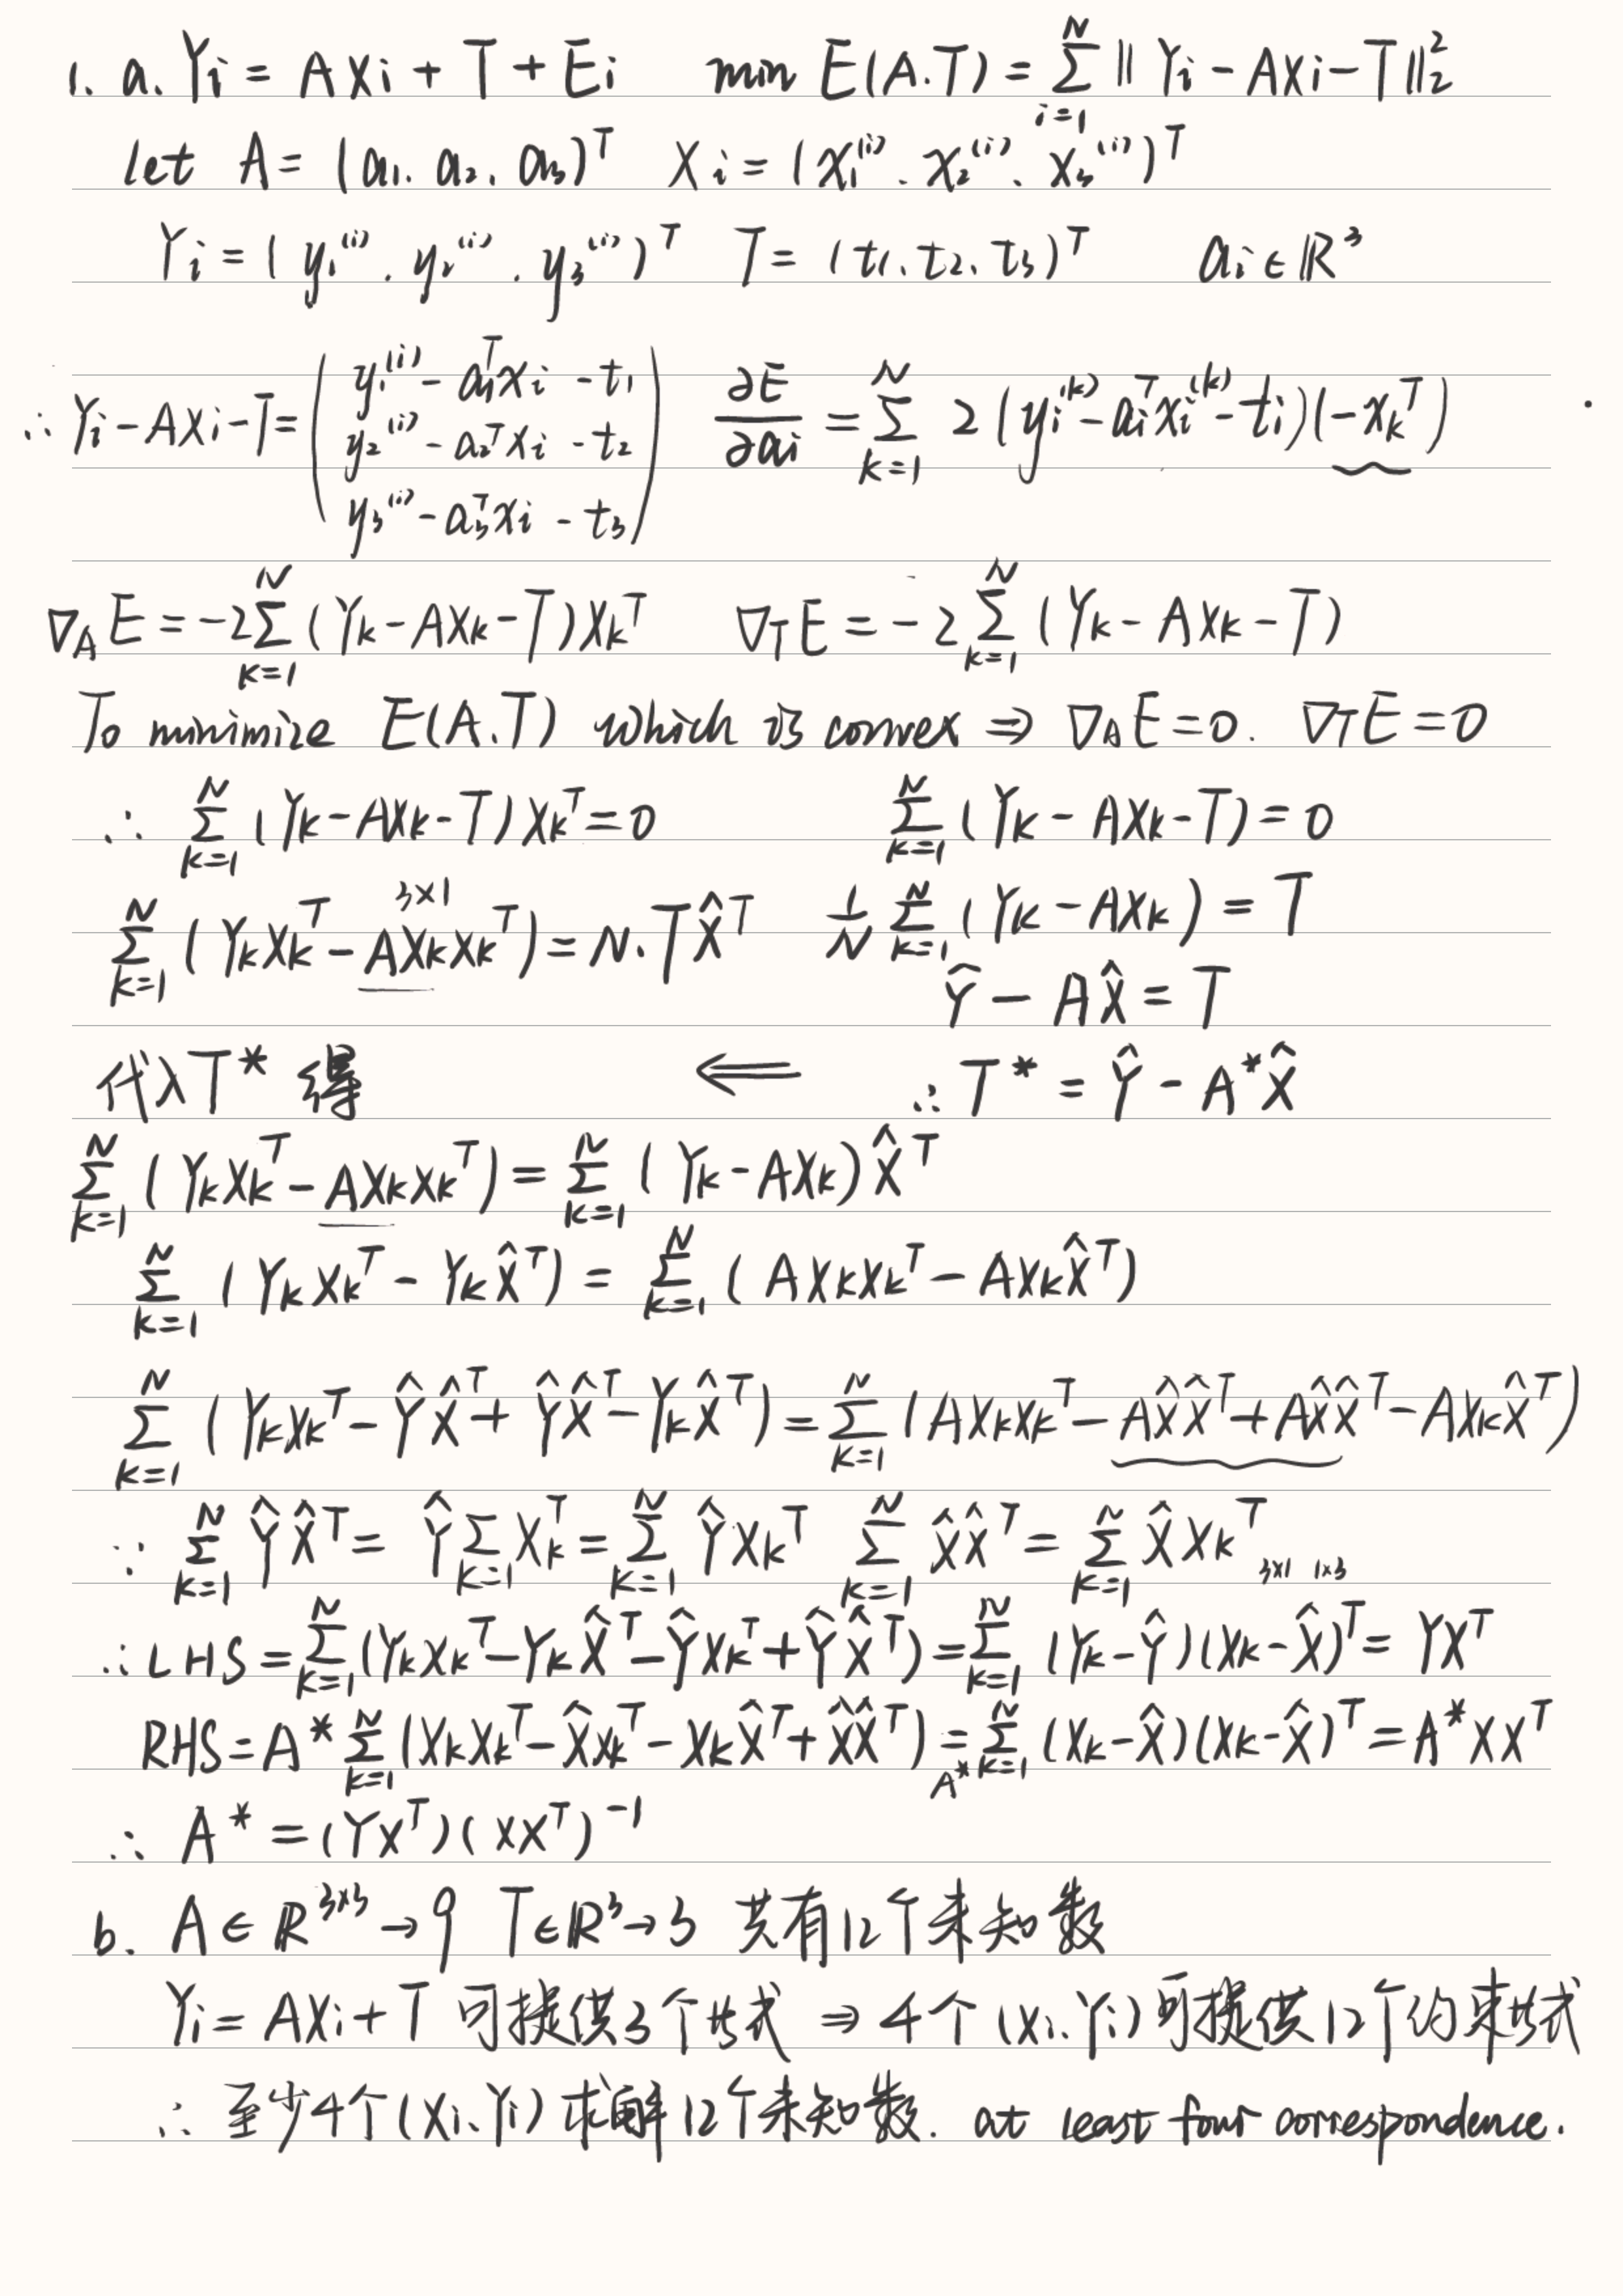 1. a. Yi = AXi + T + Ei min E(A.T) = ∑_{i=1}^{N} ‖Yi - AXi - T‖₂²
let A = (a₁. a₂. a₃)ᵀ Xi = (x₁⁽ⁱ⁾. x₂⁽ⁱ⁾. x₃⁽ⁱ⁾)ᵀ
Yi = (y₁⁽ⁱ⁾. y₂⁽ⁱ⁾. y₃⁽ⁱ⁾)ᵀ T = (t₁. t₂. t₃)ᵀ ai ∈ ℝ³
∴ Yi - AXi - T = ( y₁⁽ⁱ⁾ - a₁ᵀxi - t₁
y₂⁽ⁱ⁾ - a₂ᵀxi - t₂
y₃⁽ⁱ⁾ - a₃ᵀxi - t₃ ) ∂E/∂ai = ∑_{k=1}^{N} 2(yi⁽ᵏ⁾ - aiᵀxi⁽ᵏ⁾ - ti)(-xₖᵀ)
∇_A E = -2∑_{k=1}^{N} (Yk - AXk - T)Xkᵀ ∇_T E = -2∑_{k=1}^{N} (Yk - AXk - T)
To minimize E(A.T) which is convex ⇒ ∇_A E = 0. ∇_T E = 0
∴ ∑_{k=1}^{N} (Yk - AXk - T)Xkᵀ = 0 ∑_{k=1}^{N} (Yk - AXk - T) = 0
3×1
∑_{k=1}^{N} (YkXkᵀ - AXkXkᵀ) = N·TX̂ᵀ 1/N ∑_{k=1}^{N} (Yk - AXk) = T
Ŷ - AX̂ = T
代入T* 得 ⟸ ∴ T* = Ŷ - A*X̂
∑_{k=1}^{N} (YkXkᵀ - AXkXkᵀ) = ∑_{k=1}^{N} (Yk - AXk)X̂ᵀ
∑_{k=1}^{N} (YkXkᵀ - YkX̂ᵀ) = ∑_{k=1}^{N} (AXkXkᵀ - AXkX̂ᵀ)
∑_{k=1}^{N} (YkXkᵀ - ŶX̂ᵀ + ŶX̂ᵀ - YkX̂ᵀ) = ∑_{k=1}^{N} (AXkXkᵀ - AX̂X̂ᵀ + AX̂X̂ᵀ - AXkX̂ᵀ)
∵ ∑_{k=1}^{N} ŶX̂ᵀ = Ŷ∑_{k=1}Xkᵀ = ∑_{k=1}^{N} ŶXkᵀ ∑_{k=1}^{N} X̂X̂ᵀ = ∑_{k=1}^{N} X̂Xkᵀ 3×1 1×3
∴ LHS = ∑_{k=1}^{N} (YkXkᵀ - YkX̂ᵀ - ŶXkᵀ + ŶX̂ᵀ) = ∑_{k=1}^{N} (Yk - Ŷ)(Xk - X̂)ᵀ = YXᵀ
RHS = A*∑_{k=1}^{N} (XkXkᵀ - X̂Xkᵀ - XkX̂ᵀ + X̂X̂ᵀ) = A*∑_{k=1}^{N} (Xk - X̂)(Xk - X̂)ᵀ = A*XXᵀ
∴ A* = (YXᵀ)(XXᵀ)⁻¹
b. A ∈ ℝ³ˣ³ → 9 T ∈ ℝ³ → 3 共有12个未知数
Yi = AXi + T 可提供3个式 ⇒ 4个(Xi、Yi)可提供12个约束式
∴ 至少4个(Xi、Yi)求解12个未知数. at least four correspondence.